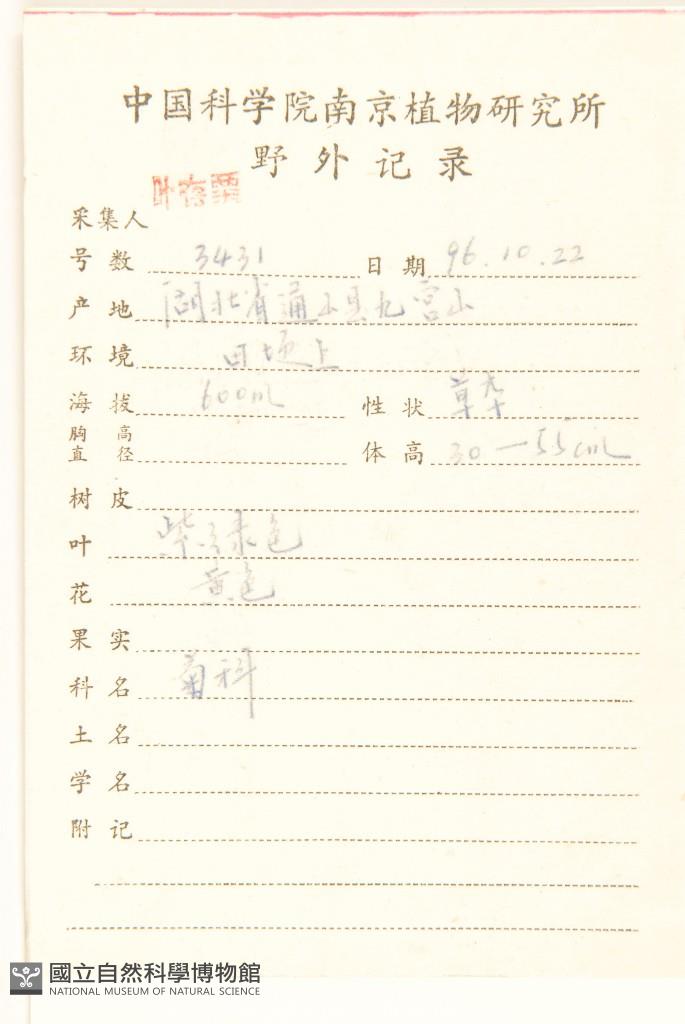 中国科学院南京植物研究所
野外记录
叶存栗
采集人
号数 3431 日期 96.10.22
产地 湖北省通山县九宫山
环境 田埂上
海拔 600m 性状 草本
胸高直径 体高 30—55cm
树皮
叶 紫绿色
花 黄色
果实
科名 菊科
土名
学名
附记
國立自然科學博物館
NATIONAL MUSEUM OF NATURAL SCIENCE